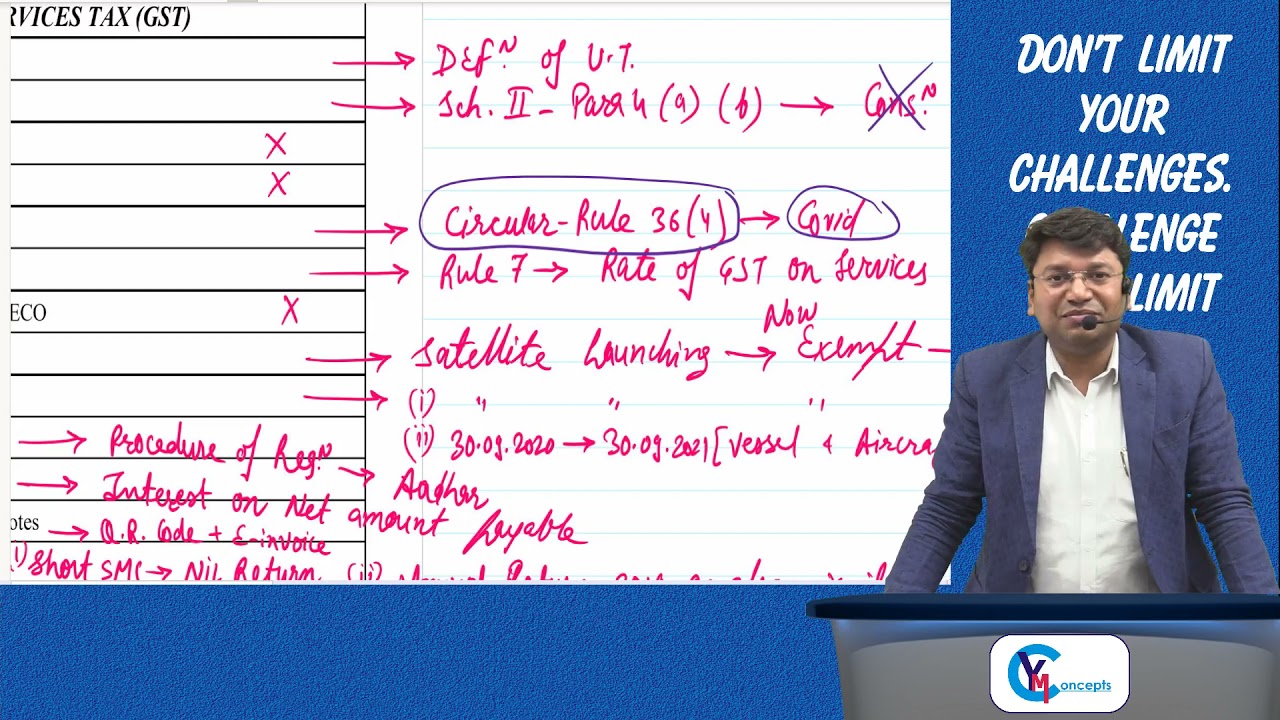 RVICES TAX (GST)
→ Defⁿ. of U.T.
→ Sch. II - Para 4 (a) (b) → Consⁿ.
X
X
→ Circular - Rule 36(4) → Covid
→ Rule 7 → Rate of GST on Services
ECO X
Now
→ Satellite Launching → Exempt —
→ (i) " " "
(ii) 30.09.2020 → 30.09.2021 [Vessel & Aircra
→ Procedure of Regⁿ. → Aadhar
→ Interest on Net amount Payable
otes → Q.R. Code + E-invoice
(i) Short SMS → Nil Return (ii)
DON'T LIMIT
YOUR
CHALLENGES.
LENGE
LIMIT
CYM
Concepts